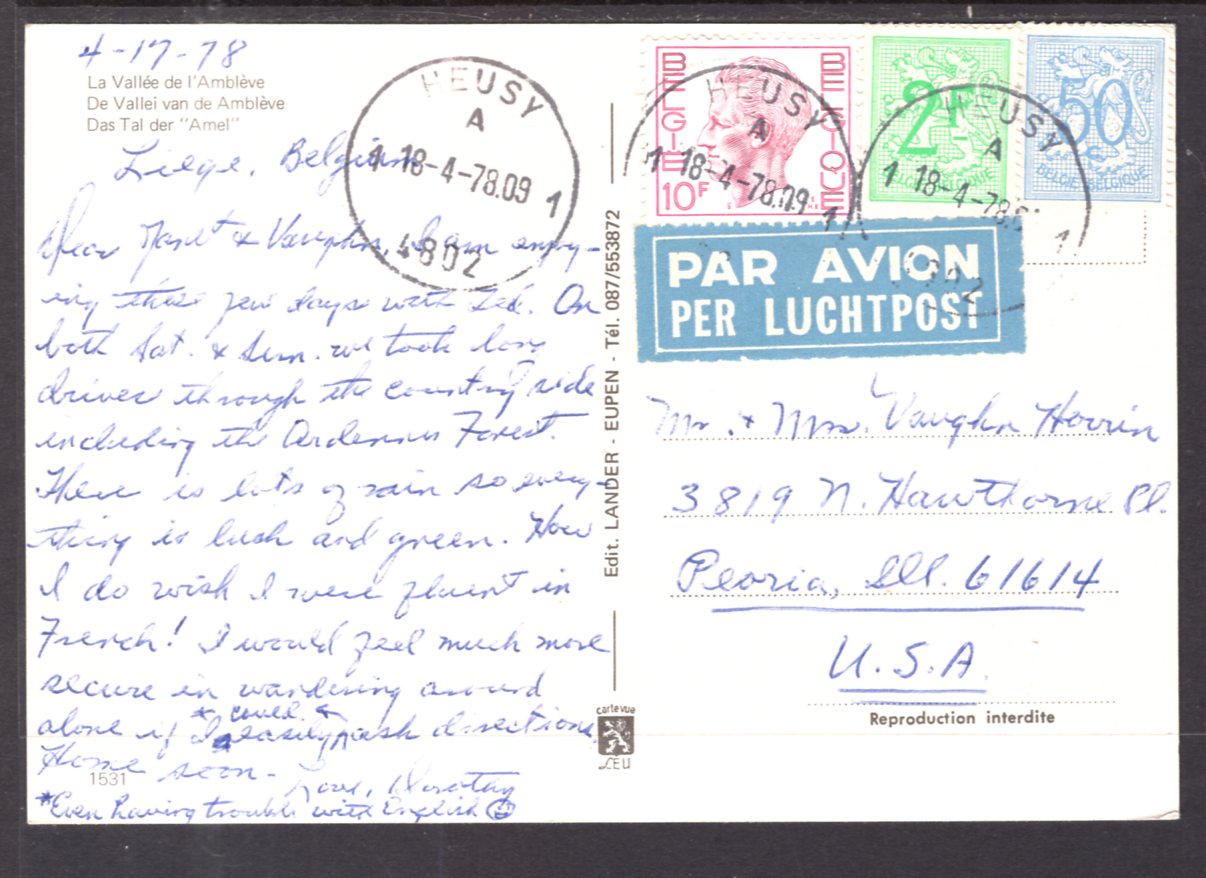 4-17-78
La Vallée de l'Amblève
De Vallei van de Amblève
Das Tal der "Amel"
Liege, Belgium
Dear Janet & Vaughn, I am enjoy-
ing these few days with Ted. On
both Sat. & Sun. we took long
drives through the country side
including the Ardennes Forest.
There is lots of rain so every-
thing is lush and green. How
I do wish I were fluent in
French! I would feel much more
secure in wandering around
* could
alone if I easily ask directions.
Home soon-
1531
Love, Dorothy
*Even having trouble with English
HEUSY
A
1 18-4-78.09 1
4802
Edit. LANDER - EUPEN - Tél. 087/553872
carte vue
LEU
BELGIE
BELGIQUE
10F
HEUSY
A
1 18-4-78.09 1
2F
BELGIE-BELGIQUE
50
BELGIE-BELGIQUE
HEUSY
A
1 18-4-78 1
PAR AVION
PER LUCHTPOST
Mr. & Mrs. Vaughn Herrin
3819 N. Hawthorne Pl.
Peoria, Ill. 61614
U.S.A.
Reproduction interdite